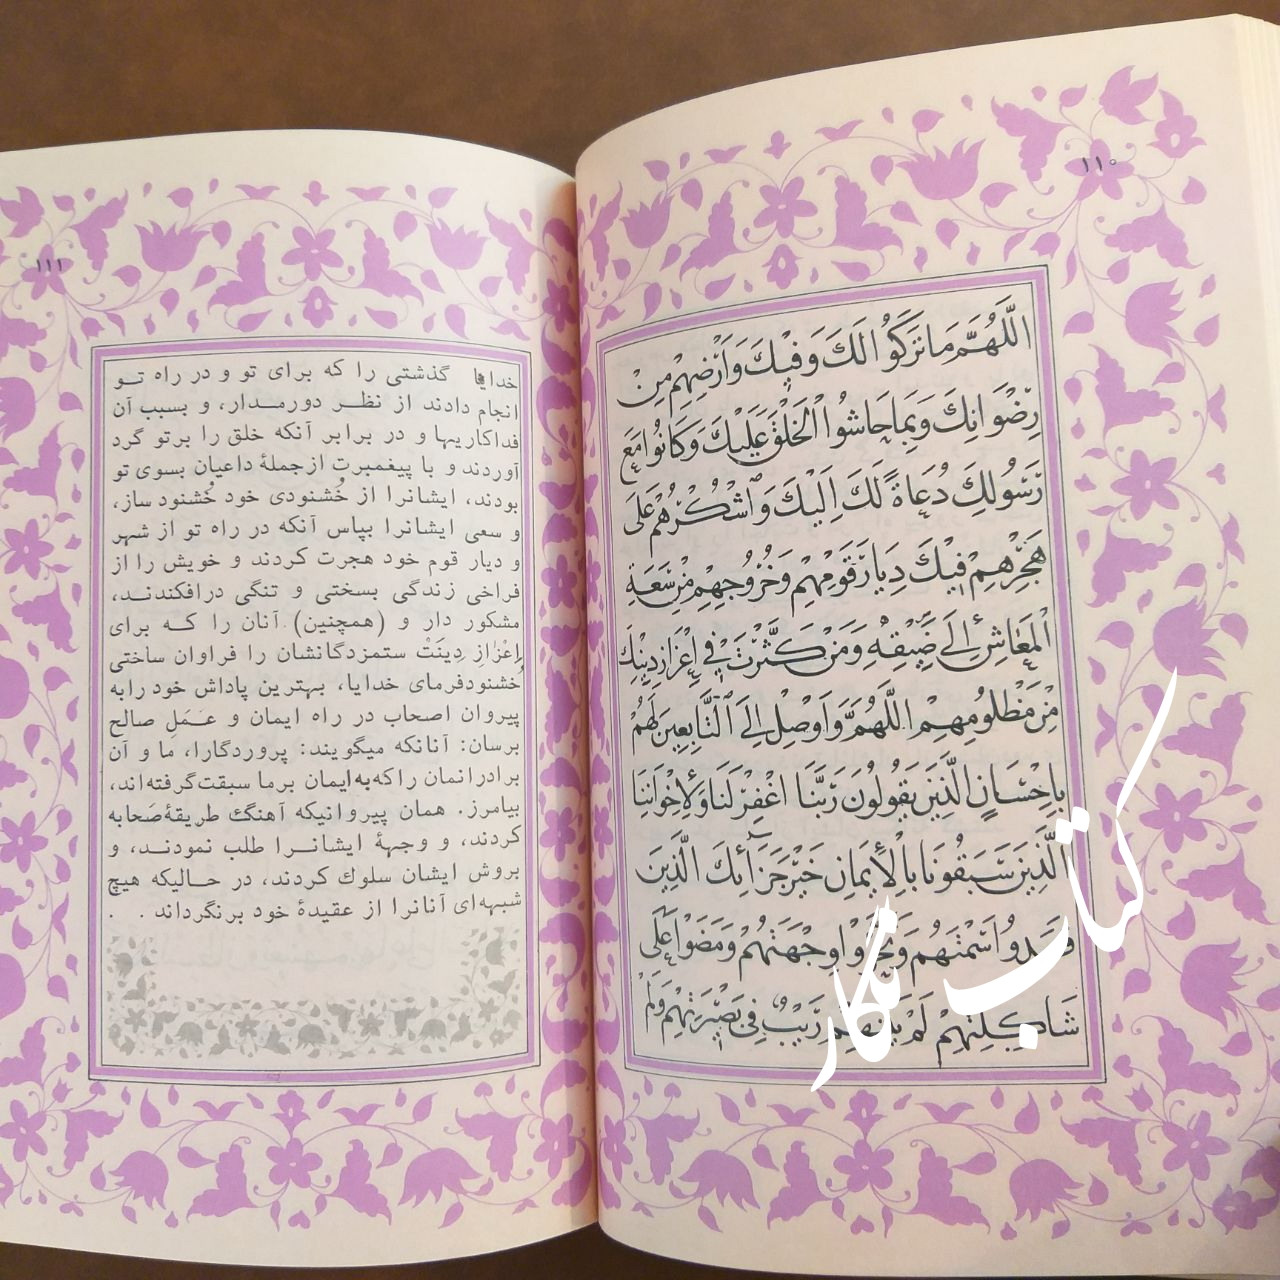 ١١٠
اللَّهُمَّ مَا تَرَكُوا لَكَ وَفِيكَ وَأَرْضِهِمْ مِنْ
رِضْوَانِكَ وَبِمَا حَاشُوا الْخَلْقَ عَلَيْكَ وَكَانُوا مَعَ
رَسُولِكَ دُعَاةً لَكَ إِلَيْكَ وَاشْكُرْهُمْ عَلَى
هَجْرِهِمْ فِيكَ دِيَارَ قَوْمِهِمْ وَخُرُوجِهِمْ مِنْ سَعَةِ
الْمَعَاشِ إِلَى ضِيقِهِ وَمَنْ كَثَّرْتَ فِي إِعْزَازِ دِينِكَ
مِنْ مَظْلُومِهِمْ اللَّهُمَّ وَأَوْصِلْ إِلَى التَّابِعِينَ لَهُمْ
بِإِحْسَانٍ الَّذِينَ يَقُولُونَ رَبَّنَا اغْفِرْ لَنَا وَلِإِخْوَانِنَا
الَّذِينَ سَبَقُونَا بِالْإِيمَانِ خَيْرَ جَزَائِكَ الَّذِينَ
قَصَدُوا سَمْتَهُمْ وَتَحَرَّوْا وِجْهَتَهُمْ وَمَضَوْا عَلَى
شَاكِلَتِهِمْ لَمْ يَثْنِهِمْ رَيْبٌ فِي بَصِيرَتِهِمْ وَلَمْ
کتاب نگار
١١١
خدایا گذشتی را که برای تو و در راه تو
انجام دادند از نظر دورمدار، و بسبب آن
فداکاریها و در برابر آنکه خلق را برتو گرد
آوردند و با پیغمبرت ازجملهٔ داعیان بسوی تو
بودند، ایشانرا از خُشنودی خود خُشنود ساز،
و سعی ایشانرا بپاس آنکه در راه تو از شهر
و دیار قوم خود هجرت کردند و خویش را از
فراخی زندگی بسختی و تنگی درافکندند،
مشکور دار و (همچنین) آنان را که برای
اِعْزازِ دِینَتْ ستمزدگانشان را فراوان ساختی
خُشنودفرمای خدایا، بهترین پاداش خود رابه
پیروان اصحاب در راه ایمان و عَمَلِ صالح
برسان: آنانکه میگویند: پروردگارا، ما و آن
برادرانمان راکه به ایمان برما سبقت گرفته‌اند،
بیامرز. همان پیروانیکه آهنگ طریقهٔ صَحابه
کردند، و وجههٔ ایشانرا طلب نمودند، و
بروش ایشان سلوك کردند، در حالیکه هیچ
شبهه‌ای آنانرا از عقیدهٔ خود برنگرداند .